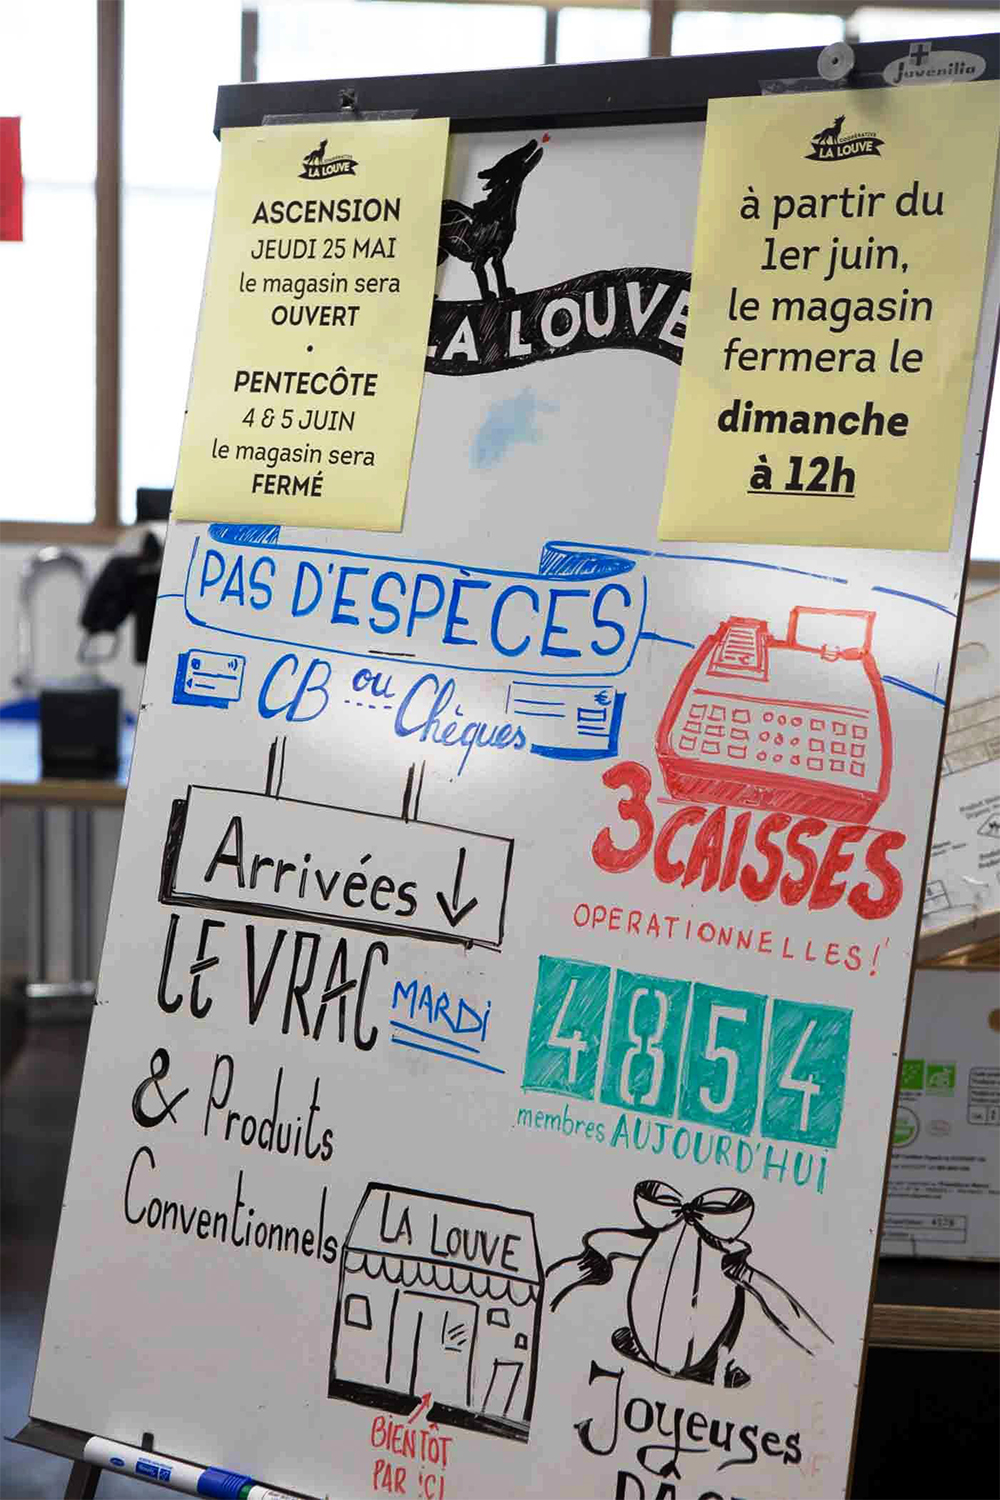 Juvenilia
COOPÉRATIVE
LA LOUVE
ASCENSION
JEUDI 25 MAI
le magasin sera
OUVERT
•
PENTECÔTE
4 & 5 JUIN
le magasin sera
FERMÉ
LA LOUVE
COOPÉRATIVE
LA LOUVE
à partir du
1er juin,
le magasin
fermera le
dimanche
à 12h
PAS D'ESPÈCES
CB ou Chèques
€
3 CAISSES
OPERATIONNELLES!
Arrivées ↓
LE VRAC MARDi
& Produits
Conventionnels
4854
membres AUJOURD'HUi
LA LOUVE
BIENTÔT
PAR iCi
Joyeuses
AB